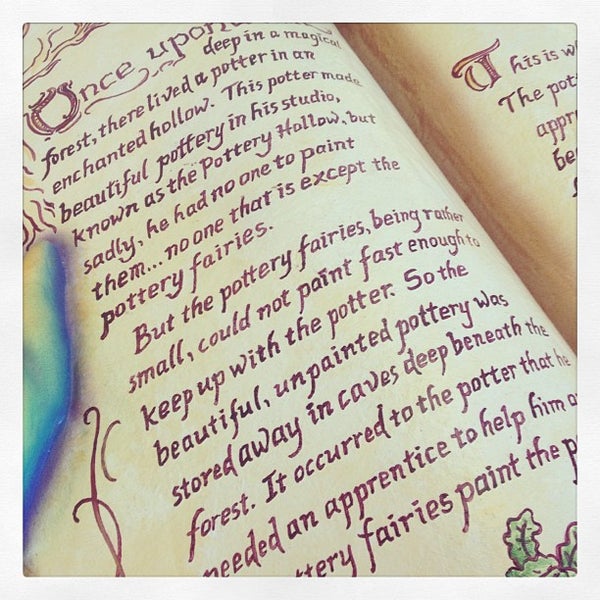 Once upon
deep in a magical
forest, there lived a potter in an
enchanted hollow. This potter made
beautiful pottery in his studio,
known as the Pottery Hollow, but
sadly, he had no one to paint
them... no one that is except the
pottery fairies.
But the pottery fairies, being rather
small, could not paint fast enough to
keep up with the potter. So the
beautiful, unpainted pottery was
stored away in caves deep beneath the
forest. It occurred to the potter that he
needed an apprentice to help him a
ttery fairies paint the p
This is w
The pot
appr
be